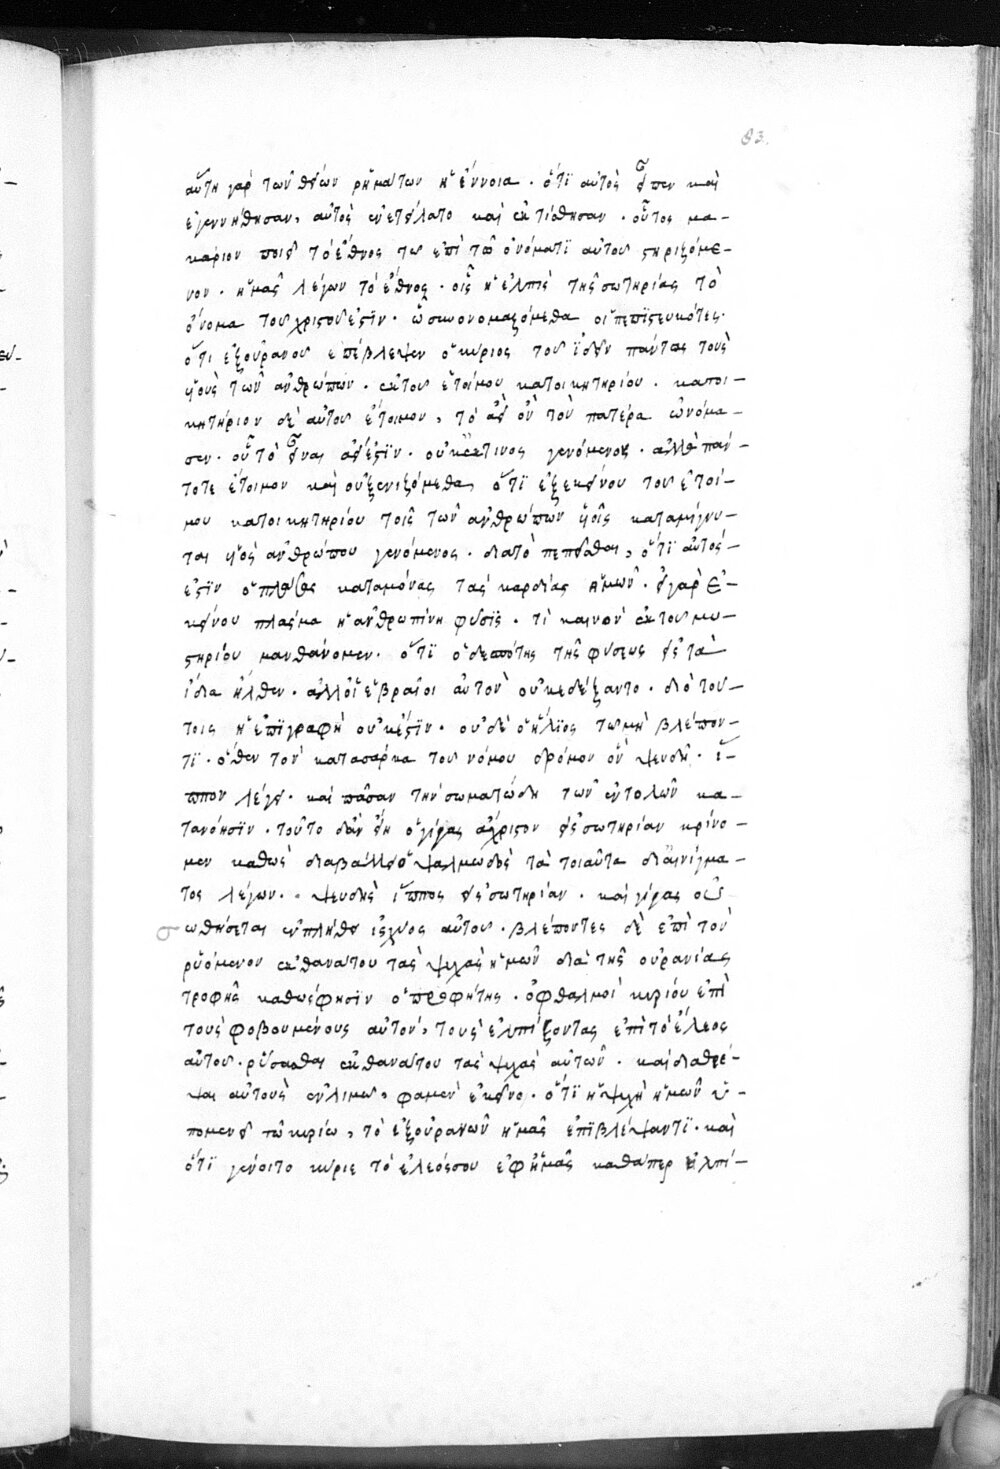 83.
αὕτη γὰρ τῶν θείων ρημάτων ἡ ἔννοια. ὅτι αὐτὸς εἶπεν καὶ
ἐγεννήθησαν, αὐτὸς ἐνετείλατο καὶ ἐκτίσθησαν. οὗτος μα-
κάριον ποιεῖ τὸ ἔθνος τω ἐπὶ τῶ ὀνόματι αὐτοῦ στηριζόμε-
νον. ἡμᾶς λέγων τὸ ἔθνος. οἷς ἡ ἐλπὶς τῆς σωτηρίας τὸ
ὄνομα τοῦ χριστοῦ ἐστὶν. ὧ συνονομαζόμεθα οἱ πεπιστευκότες.
ὅτι ἐξ οὐρανοῦ ἐπέβλεψεν ὁ κύριος τοῦ ἰδεῖν πάντας τοὺς
υἱοὺς τῶν ἀνθρώπων. ἐκ τοῦ ἑτοίμου κατοικητηρίου. κατοι-
κητήριον δὲ αὐτοῦ ἕτοιμον, τὸ ἀεὶ ὂν τὸν πατέρα ὠνόμα-
σεν. οὗ τὸ εἶναι ἀεί ἐστιν. οὐκ ἔκ τινος γενόμενος. ἀλλὰ πάν-
τοτε ἕτοιμον καὶ οὐ ξενιζόμεθα, ὅτι ἐξ ἐκείνου τοῦ ἑτοί-
μου κατοικητηρίου τοῖς τῶν ἀνθρώπων υἱοῖς καταμίγνυ-
ται υἱὸς ἀνθρώπου γενόμενος. διὰ τὸ πεπεῖσθαι, ὅτι αὐτὸς
ἐστιν ὁ πλάσας καταμόνας τὰς καρδίας ἡμῶν. εἰ γὰρ ἐ-
κείνου πλάσμα ἡ ἀνθρωπίνη φύσις. τί καινὸν ἐκ τοῦ μυ-
στηρίου μανθάνομεν. ὅτι ὁ δεσπότης τῆς φύσεως εἰς τὰ
ἴδια ἦλθεν. ἀλλ' οἱ ἑβραῖοι αὐτὸν οὐκ ἐδέξαντο. διὸ τού-
τοις ἡ ἐπιγραφὴ οὐκ ἔστιν. οὐδὲ ὁ ἥλιος τω μὴ βλέπον-
τι. ὅθεν τὸν κατὰ σάρκα τοῦ νόμου δρόμον ὃν ψευδῆ. ἵ-
ππον λέγει. καὶ πᾶσαν τὴν σωματώδη τῶν ἐντολῶν κα-
τανόησιν. τοῦτο δ' ἂν εἴη ὁ γίγας ἄχρηστον εἰς σωτηρίαν κρίνο-
μεν καθὼς διαβάλλει ὁ ψαλμωδὸς τὰ τοιαῦτα δι' αἰνίγμα-
τος λέγων. ψευδὴς ἵππος εἰς σωτηρίαν. καὶ γίγας οὐ
σωθήσεται ἐν πλήθει ἰσχύος αὐτοῦ. βλέποντες δὲ ἐπὶ τὸν
ρυόμενον ἐκ θανάτου τὰς ψυχὰς ἡμῶν διὰ τῆς οὐρανίας
τροφῆς καθώς φησιν ὁ προφήτης. ὀφθαλμοὶ κυρίου ἐπὶ
τοὺς φοβουμένους αὐτόν, τοὺς ἐλπίζοντας ἐπὶ τὸ ἔλεος
αὐτοῦ. ρύσασθαι ἐκ θανάτου τὰς ψυχὰς αὐτῶν. καὶ διαθρέ-
ψαι αὐτοὺς ἐν λιμῶ, φαμὲν ἐκεῖνο. ὅτι ἡ ψυχὴ ἡμῶν ὑ-
πομενεῖ τῶ κυρίω, τὸ ἐξ οὐρανῶν ἡμᾶς ἐπιβλέψαντι. καὶ
ὅτι γένοιτο κύριε τὸ ἔλεός σου ἐφ' ἡμᾶς καθάπερ ἠλπί-